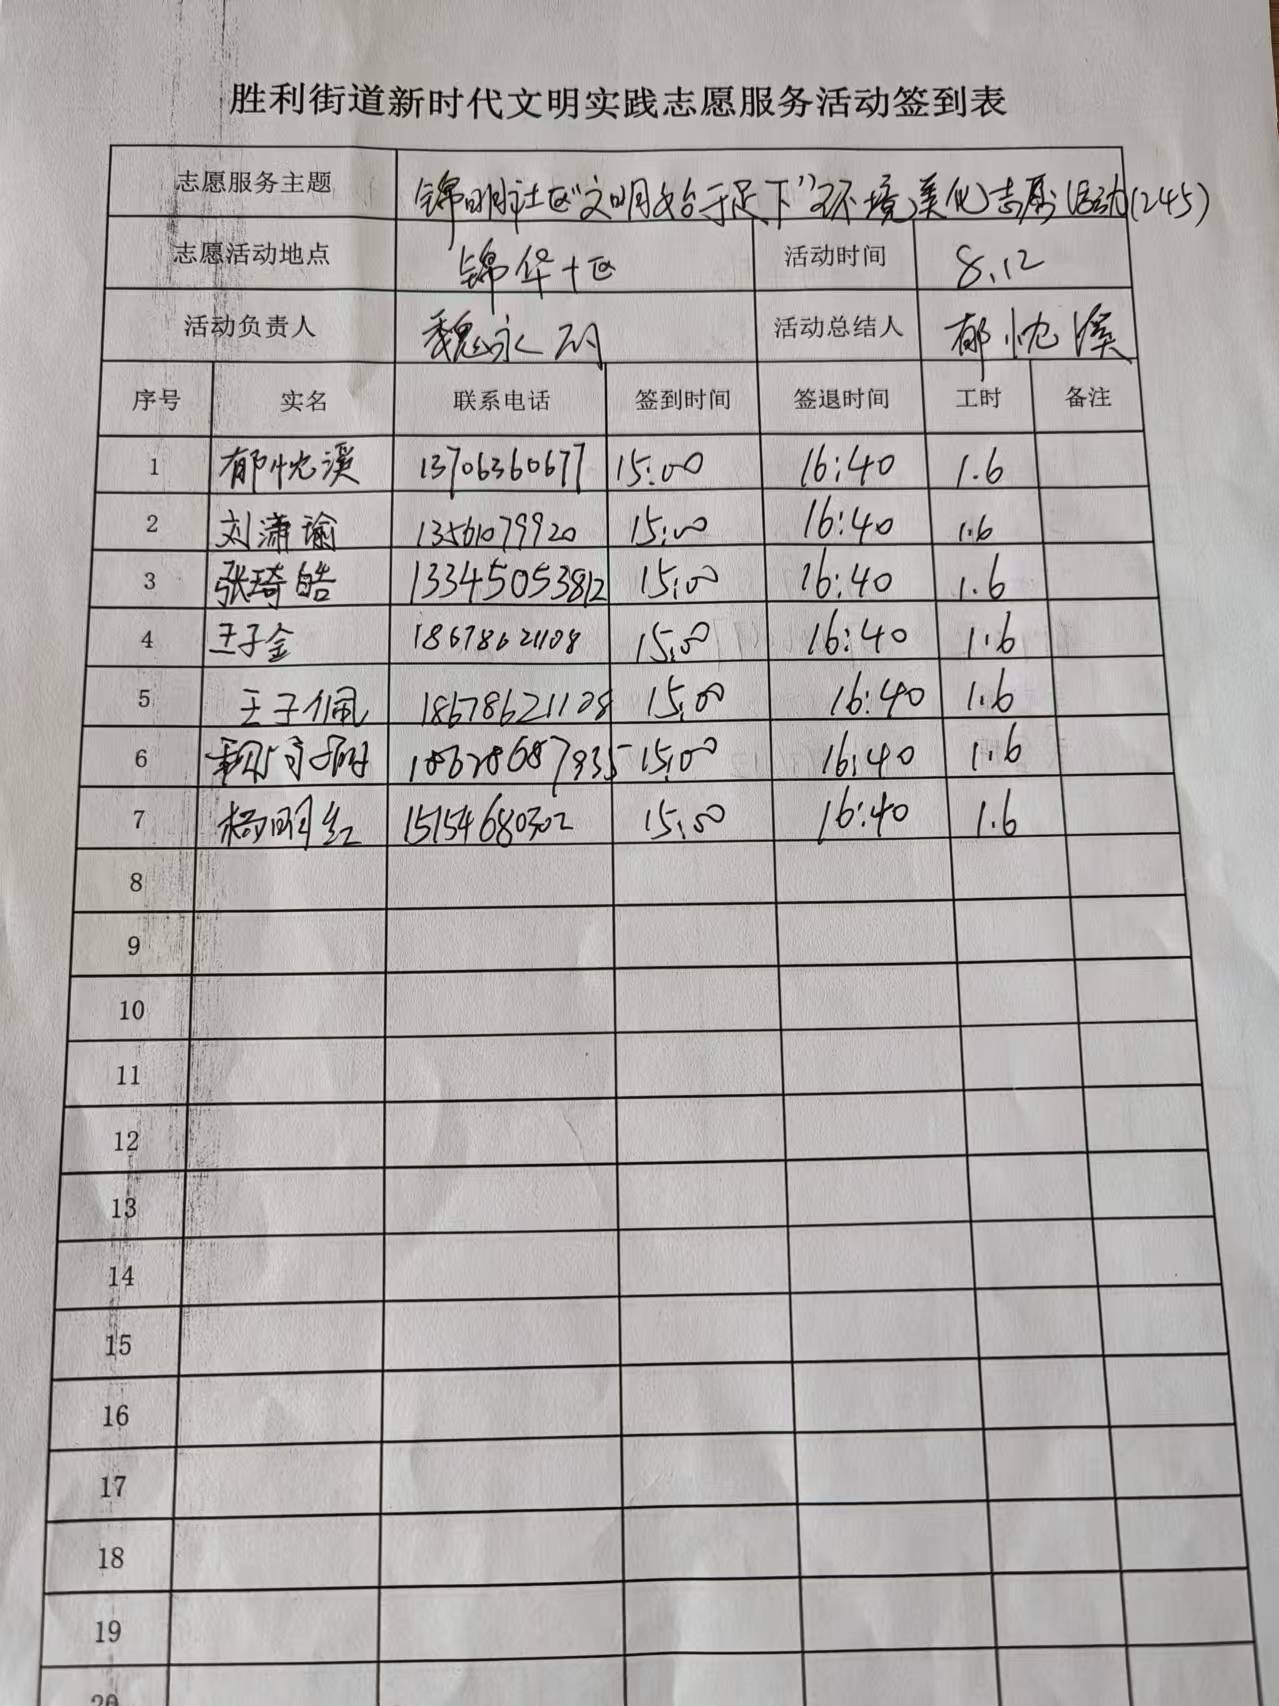 胜利街道新时代文明实践志愿服务活动签到表
志愿服务主题 锦明社区"文明始于足下"环境美化志愿活动(245)
志愿活动地点 锦华十区 活动时间 8.12
活动负责人 魏永 活动总结人 郁忱溪
序号 实名 联系电话 签到时间 签退时间 工时 备注
1 郁忱溪 13706360677 15:00 16:40 1.6
2 刘潇谕 13561079920 15:00 16:40 1.6
3 张琦皓 13345053812 15:00 16:40 1.6
4 王子金 18678621108 15:00 16:40 1.6
5 王子佩 18678621108 15:00 16:40 1.6
6 15:00 16:40 1.6
7 杨明红 15154680302 15:00 16:40 1.6
8
9
10
11
12
13
14
15
16
17
18
19
20